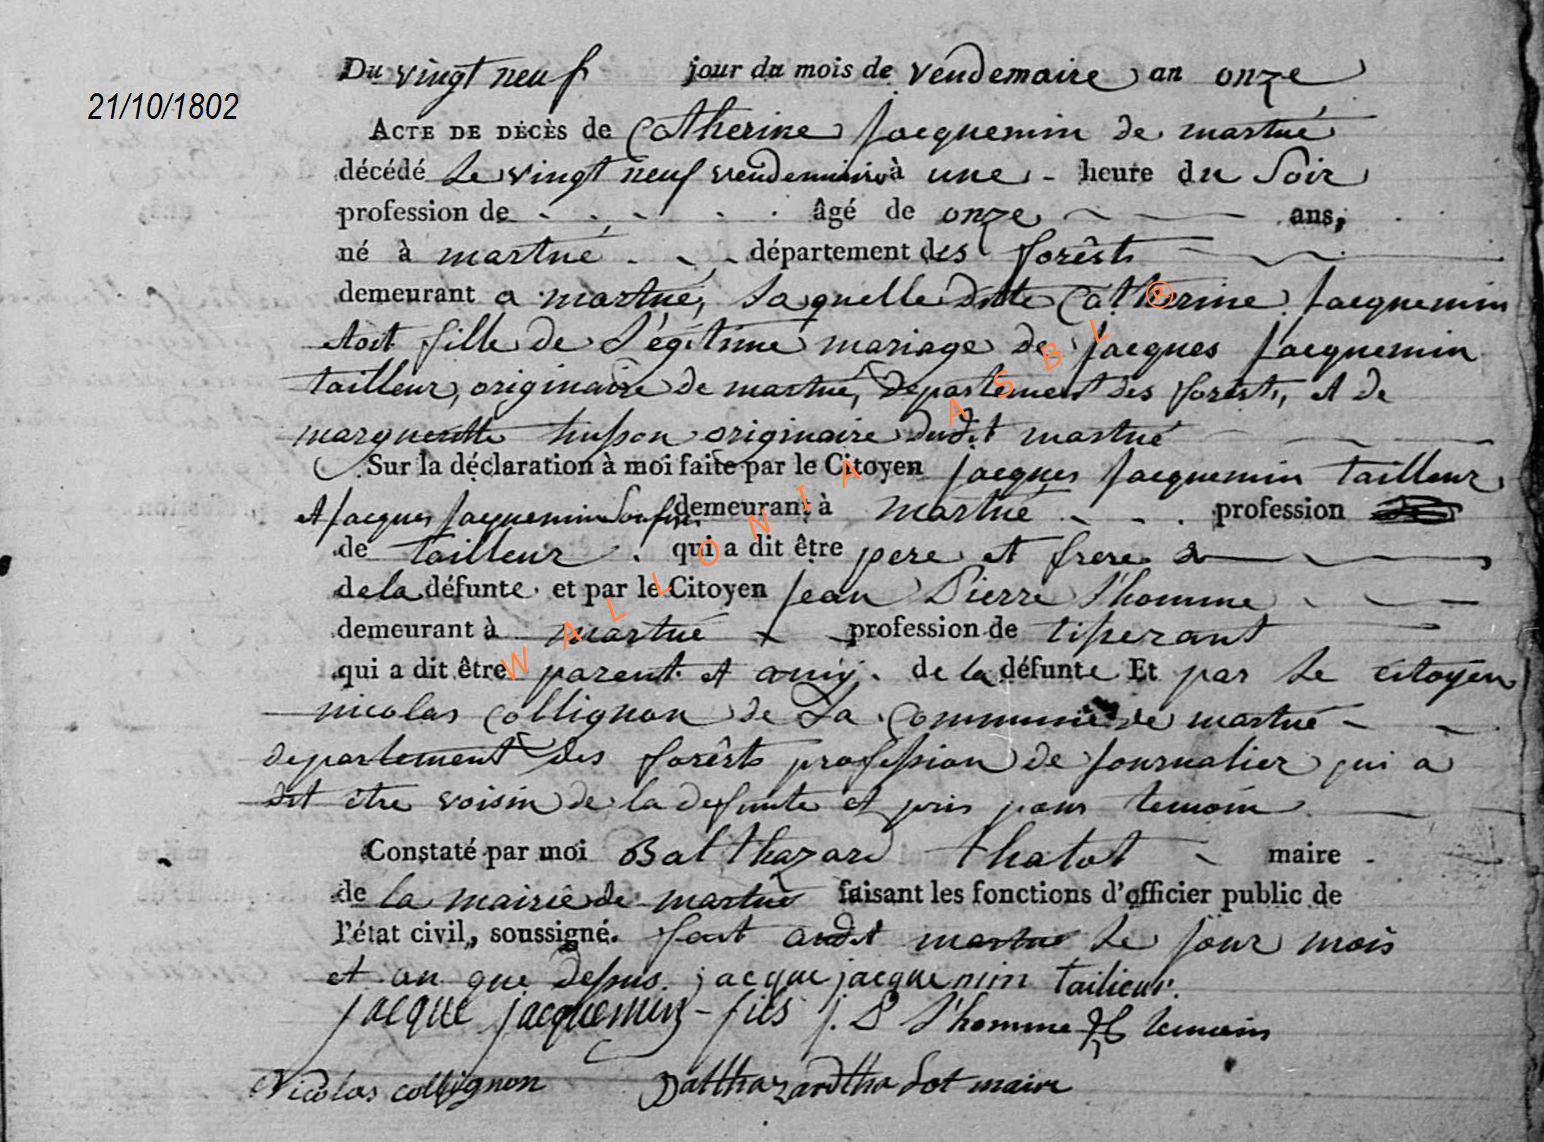 Du vingt neuf jour du mois de vendemaire an onze
21/10/1802
ACTE DE DÉCÈS de Catherine Jacquemin de martué
décédé le vingt neuf vendemiaire à une heure du Soir
profession de âgé de onze ans,
né à martué département des forêsts
demeurant a martué, laquelle dite Catherine Jacquemin
etoit fille de légitime mariage de jacques Jacquemin
tailleur, originaire de martué, departement des forêsts, et de
margueritte husson originaire dudit martué
Sur la déclaration à moi faite par le Citoyen jacques Jacquemin tailleur
et jacques jaquemin son fils demeurant à martué profession
de tailleur qui a dit être pere et frere
de la défunte et par le Citoyen jean Pierre l'homme
demeurant à martué profession de
qui a dit être parent et amÿ de la défunte Et par le citoyen
nicolas collignon de La Commune de martué
departement des forêsts profession de journalier qui a
dit être voisin de la defunte et pris pour temoin
Constaté par moi Balthazard thalot maire
de la mairie de martué faisant les fonctions d'officier public de
l'état civil, soussigné. fait audit martué le jour mois
et an que dessus. jacque jacquemin tailieur.
jacque jacqueminz - fils j. P l'homme temoin
Nicolas collignon Balthazard thalot maire
WALLONIA ASBL ®